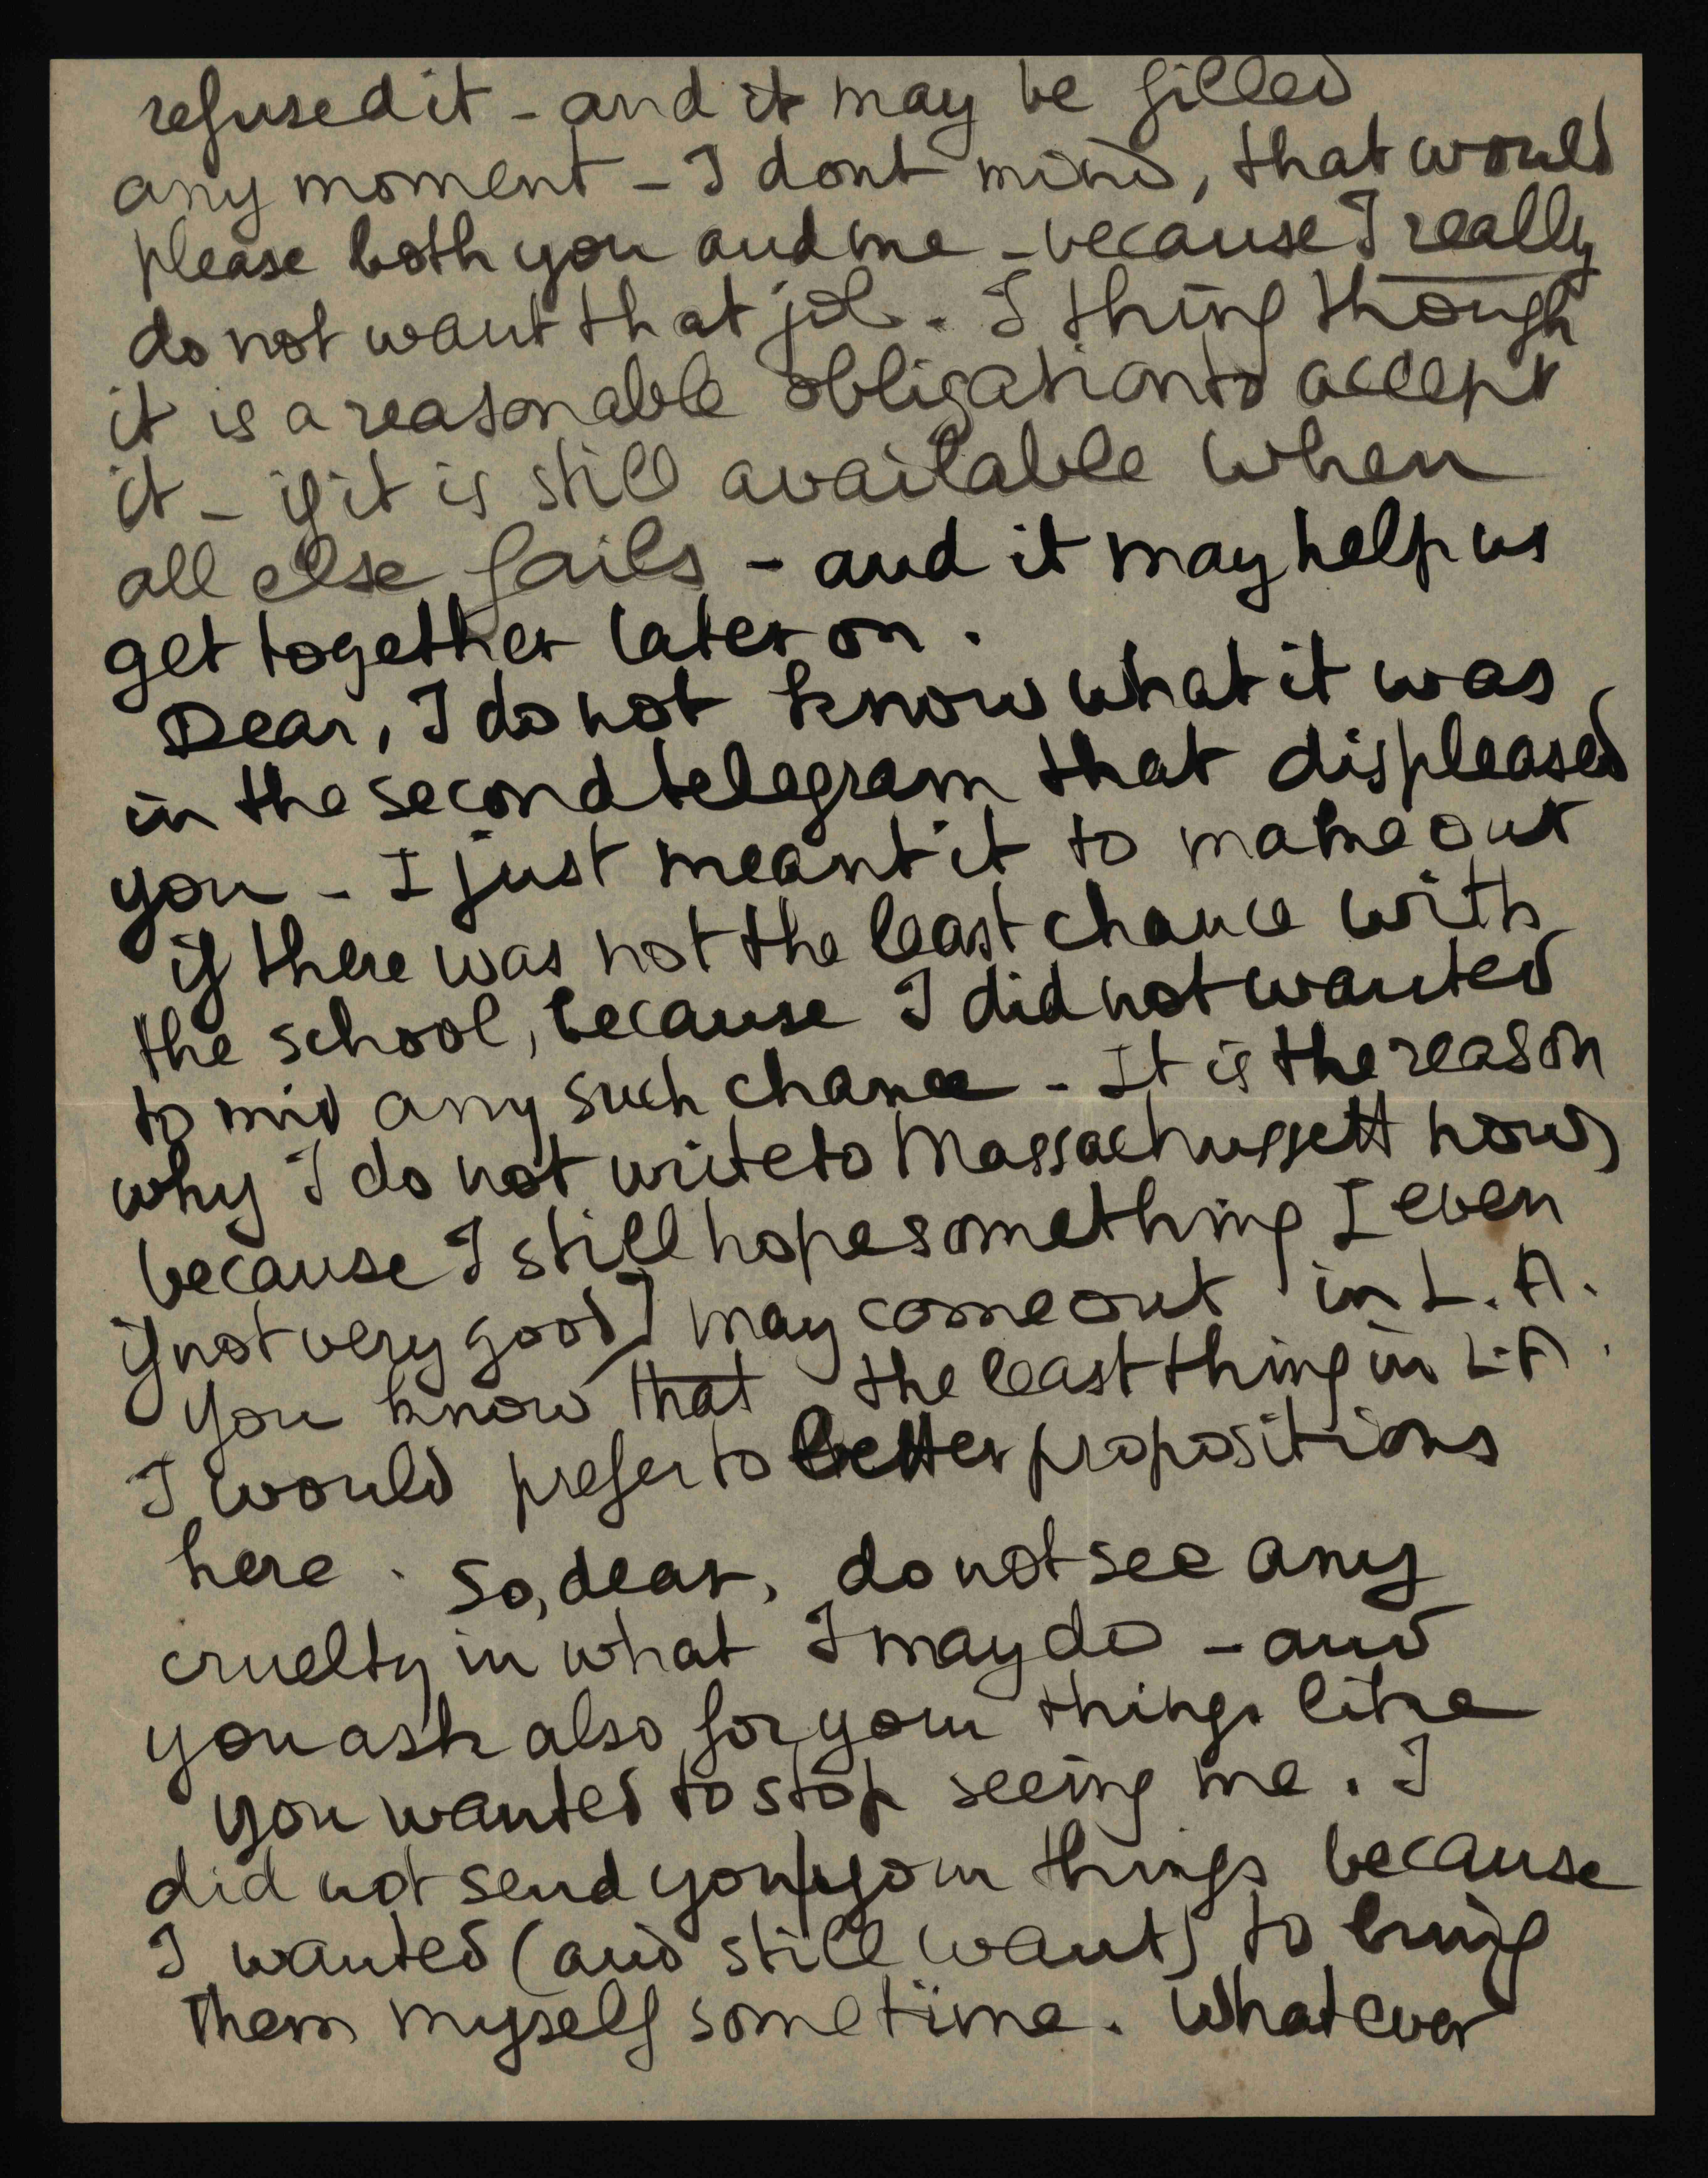 refused it - and it may be filled
any moment - I dont mind, that would
please both you and me - because I really
do not want that job. I thing though
it is a reasonable obligation to accept
it - if it is still available when
all else fails - and it may help us
get together later on.
Dear, I do not know what it was
in the second telegram that displeased
you - I just meant it to make out
if there was not the least chance with
the school, because I did not wanted
to mis any such chance - It is the reason
why I do not write to Massachussett now,
because I still hope something [even
if not very good] may come out in L.A.
You know that the least thing in L.A.
I would prefer to better propositions
here. So, dear, do not see any
cruelty in what I may do - and
you ask also for your things like
you wanted to stop seeing me. I
did not send you your things because
I wanted (and still want) to bring
them myself sometime. Whatever